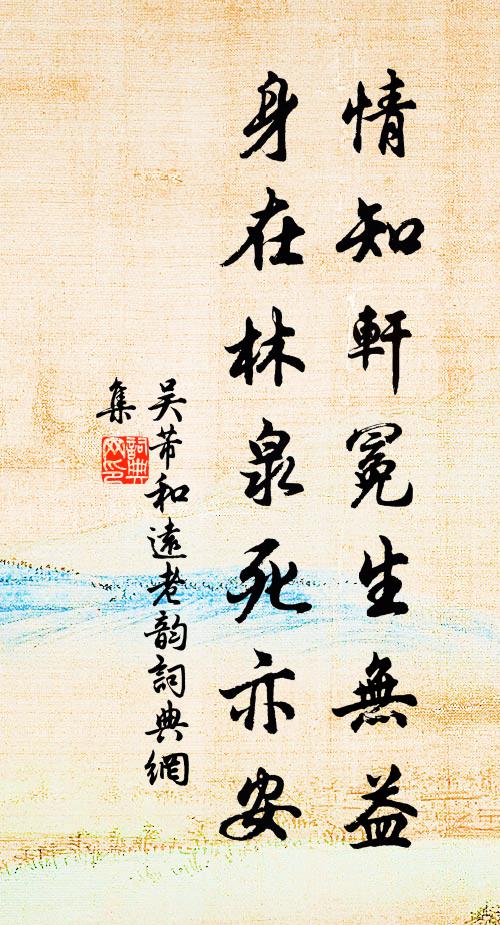 情知軒冕生無益
身在林泉死亦安
吴芾和遠老韵詞典網
集
詞典
网印